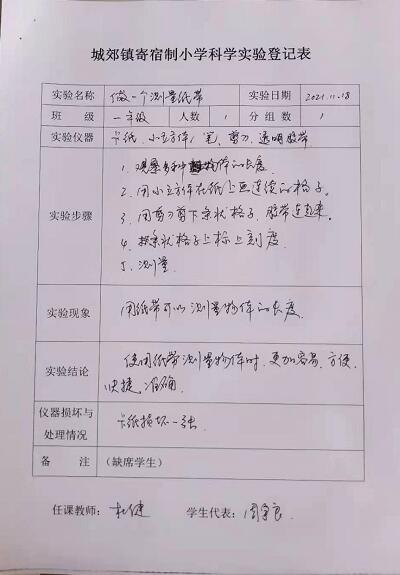 城郊镇寄宿制小学科学实验登记表
实验名称 做一个测量纸带 实验日期 2021.11.18
班 级 一年级 人数 1 分组数 1
实验仪器 卡纸、小立方体、笔、剪刀、透明胶带
1、观察 物体的长度
2、用小立方体在纸上画连续的格子。
实验步骤 3、用剪刀剪下条状格子，胶带连起来。
4、在条状格子上标上刻度
5、测量
实验现象 用纸带可以测量物体的长度
实验结论 使用纸带测量物体时，更加容易、方便、
快捷、准确
仪器损坏与
处理情况 卡纸损坏一张
备 注 (缺席学生)
任课教师： 杜健 学生代表：